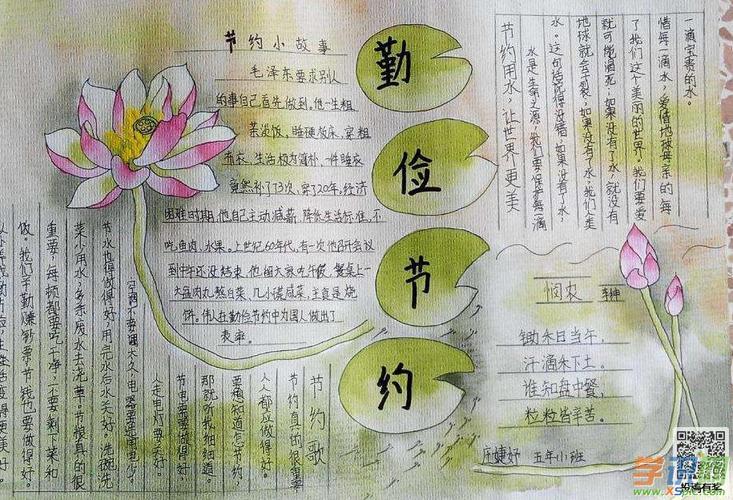 勤
俭
节
约
节约小故事
毛泽东要求别人
的事自己首先做到。他一生粗
茶淡饭、睡硬板床、穿粗
布衣,生活极为简朴,一件睡衣
竟然补了73次、穿了20年。经济
困难时期,他自己主动减薪、降低生活标准,不
吃鱼肉、水果。上世纪60年代,有一次他召开会议
到中午还没结束,他留大家吃午餐,餐桌上一
大盆肉丸熬白菜、几小碟咸菜,主食是烧
饼。伟人在勤俭节约中为国人做出了
表率。
节约用水,让世界更美
水是生命之源,我们要保护每一滴
水。这句话说得没错。如果没有了水,
地球就会干裂;如果没有了水,我们人类
就可能渴死;如果没有了水,就没有
了我们这个美丽的世界。我们要爱
惜每一滴水,爱惜地球母亲的每
一滴宝贵的水。
节约歌
节约真的很重要
人人都应做得好。
要想知道怎节约,
那就听我细细道。
节电要做得好,
人走电灯要关好。
空调不要开太久,电器要选用电少。
节水也得做得好,用完水后水关好。洗碗洗
菜少用水,多余废水去浇草。节粮真的很
重要,每顿都要吃干净,不要剩下菜和
做。我们辛勤赚钞票,节钱也要做得好。
悯农 李绅
锄禾日当午,
汗滴禾下土。
谁知盘中餐,
粒粒皆辛苦。
五年小班
学课网
投稿有奖